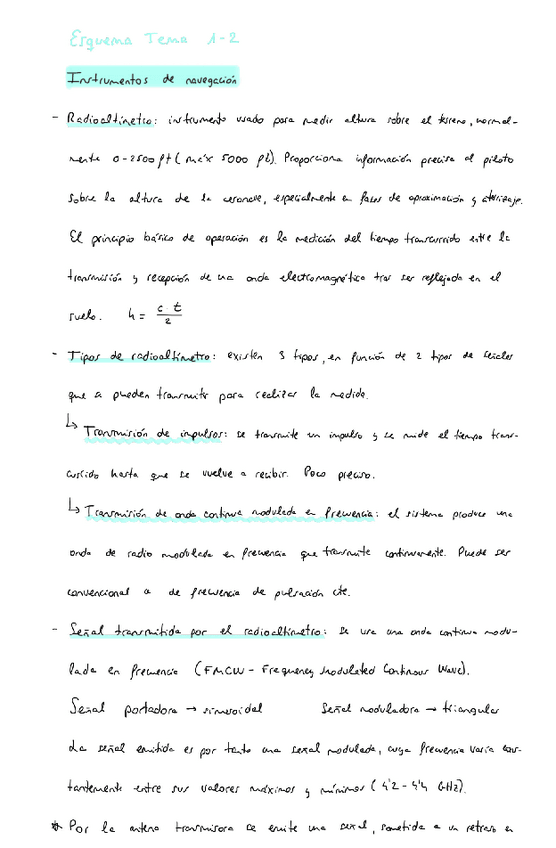 Esquema Tema 1-2
Instrumentos de navegación
- Radioaltímetro: instrumento usado para medir altura sobre el terreno, normal-
mente 0-2500 ft (máx 5000 ft). Proporciona información precisa al piloto
sobre la altura de la aeronave, especialmente en fases de aproximación y aterrizaje.
El principio básico de operación es la medición del tiempo transcurrido entre la
transmisión y recepción de una onda electromagnética tras ser reflejada en el
suelo. h = c t / 2
- Tipos de radioaltímetro: existen 3 tipos, en función de 2 tipos de señales
que se pueden transmitir para realizar la medida.
↳ Transmisión de impulsos: se transmite un impulso y se mide el tiempo trans-
curcido hasta que se vuelve a recibir. Poco preciso.
↳ Transmisión de onda continua modulada en frecuencia: el sistema produce una
onda de radio modulada en frecuencia que transmite continuamente. Puede ser
convencional o de frecuencia de pulsación cte.
- Señal transmitida por el radioaltímetro: se usa una onda continua modu-
lada en frecuencia (FMCW - Frequency Modulated Continous Wave).
Señal portadora → sinusoidal Señal moduladora → triangular
La señal emitida es por tanto una señal modulada, cuya frecuencia varía cons-
tantemente entre sus valores máximos y mínimos (4'2 - 4'4 GHz).
* Por la antena transmisora se emite una señal, sometida a un retraso en